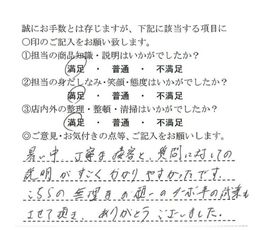 誠にお手数とは存じますが、下記に該当する項目に
〇印のご記入をお願い致します。
①担当の商品知識・説明はいかがでしたか?
満足 ・ 普通 ・ 不満足
②担当の身だしなみ・笑顔・態度はいかがでしたか?
満足 ・ 普通 ・ 不満足
③店内外の整理・整頓・清掃はいかがでしたか?
満足 ・ 普通 ・ 不満足
◎ご意見・お気付きの点等、ご記入をお願いします。
暑い中 丁寧な接客と、質問に対しての
説明がすごく分かりやすかったです。
こちらの無理なお願いの
させて頂き、ありがとうございました。